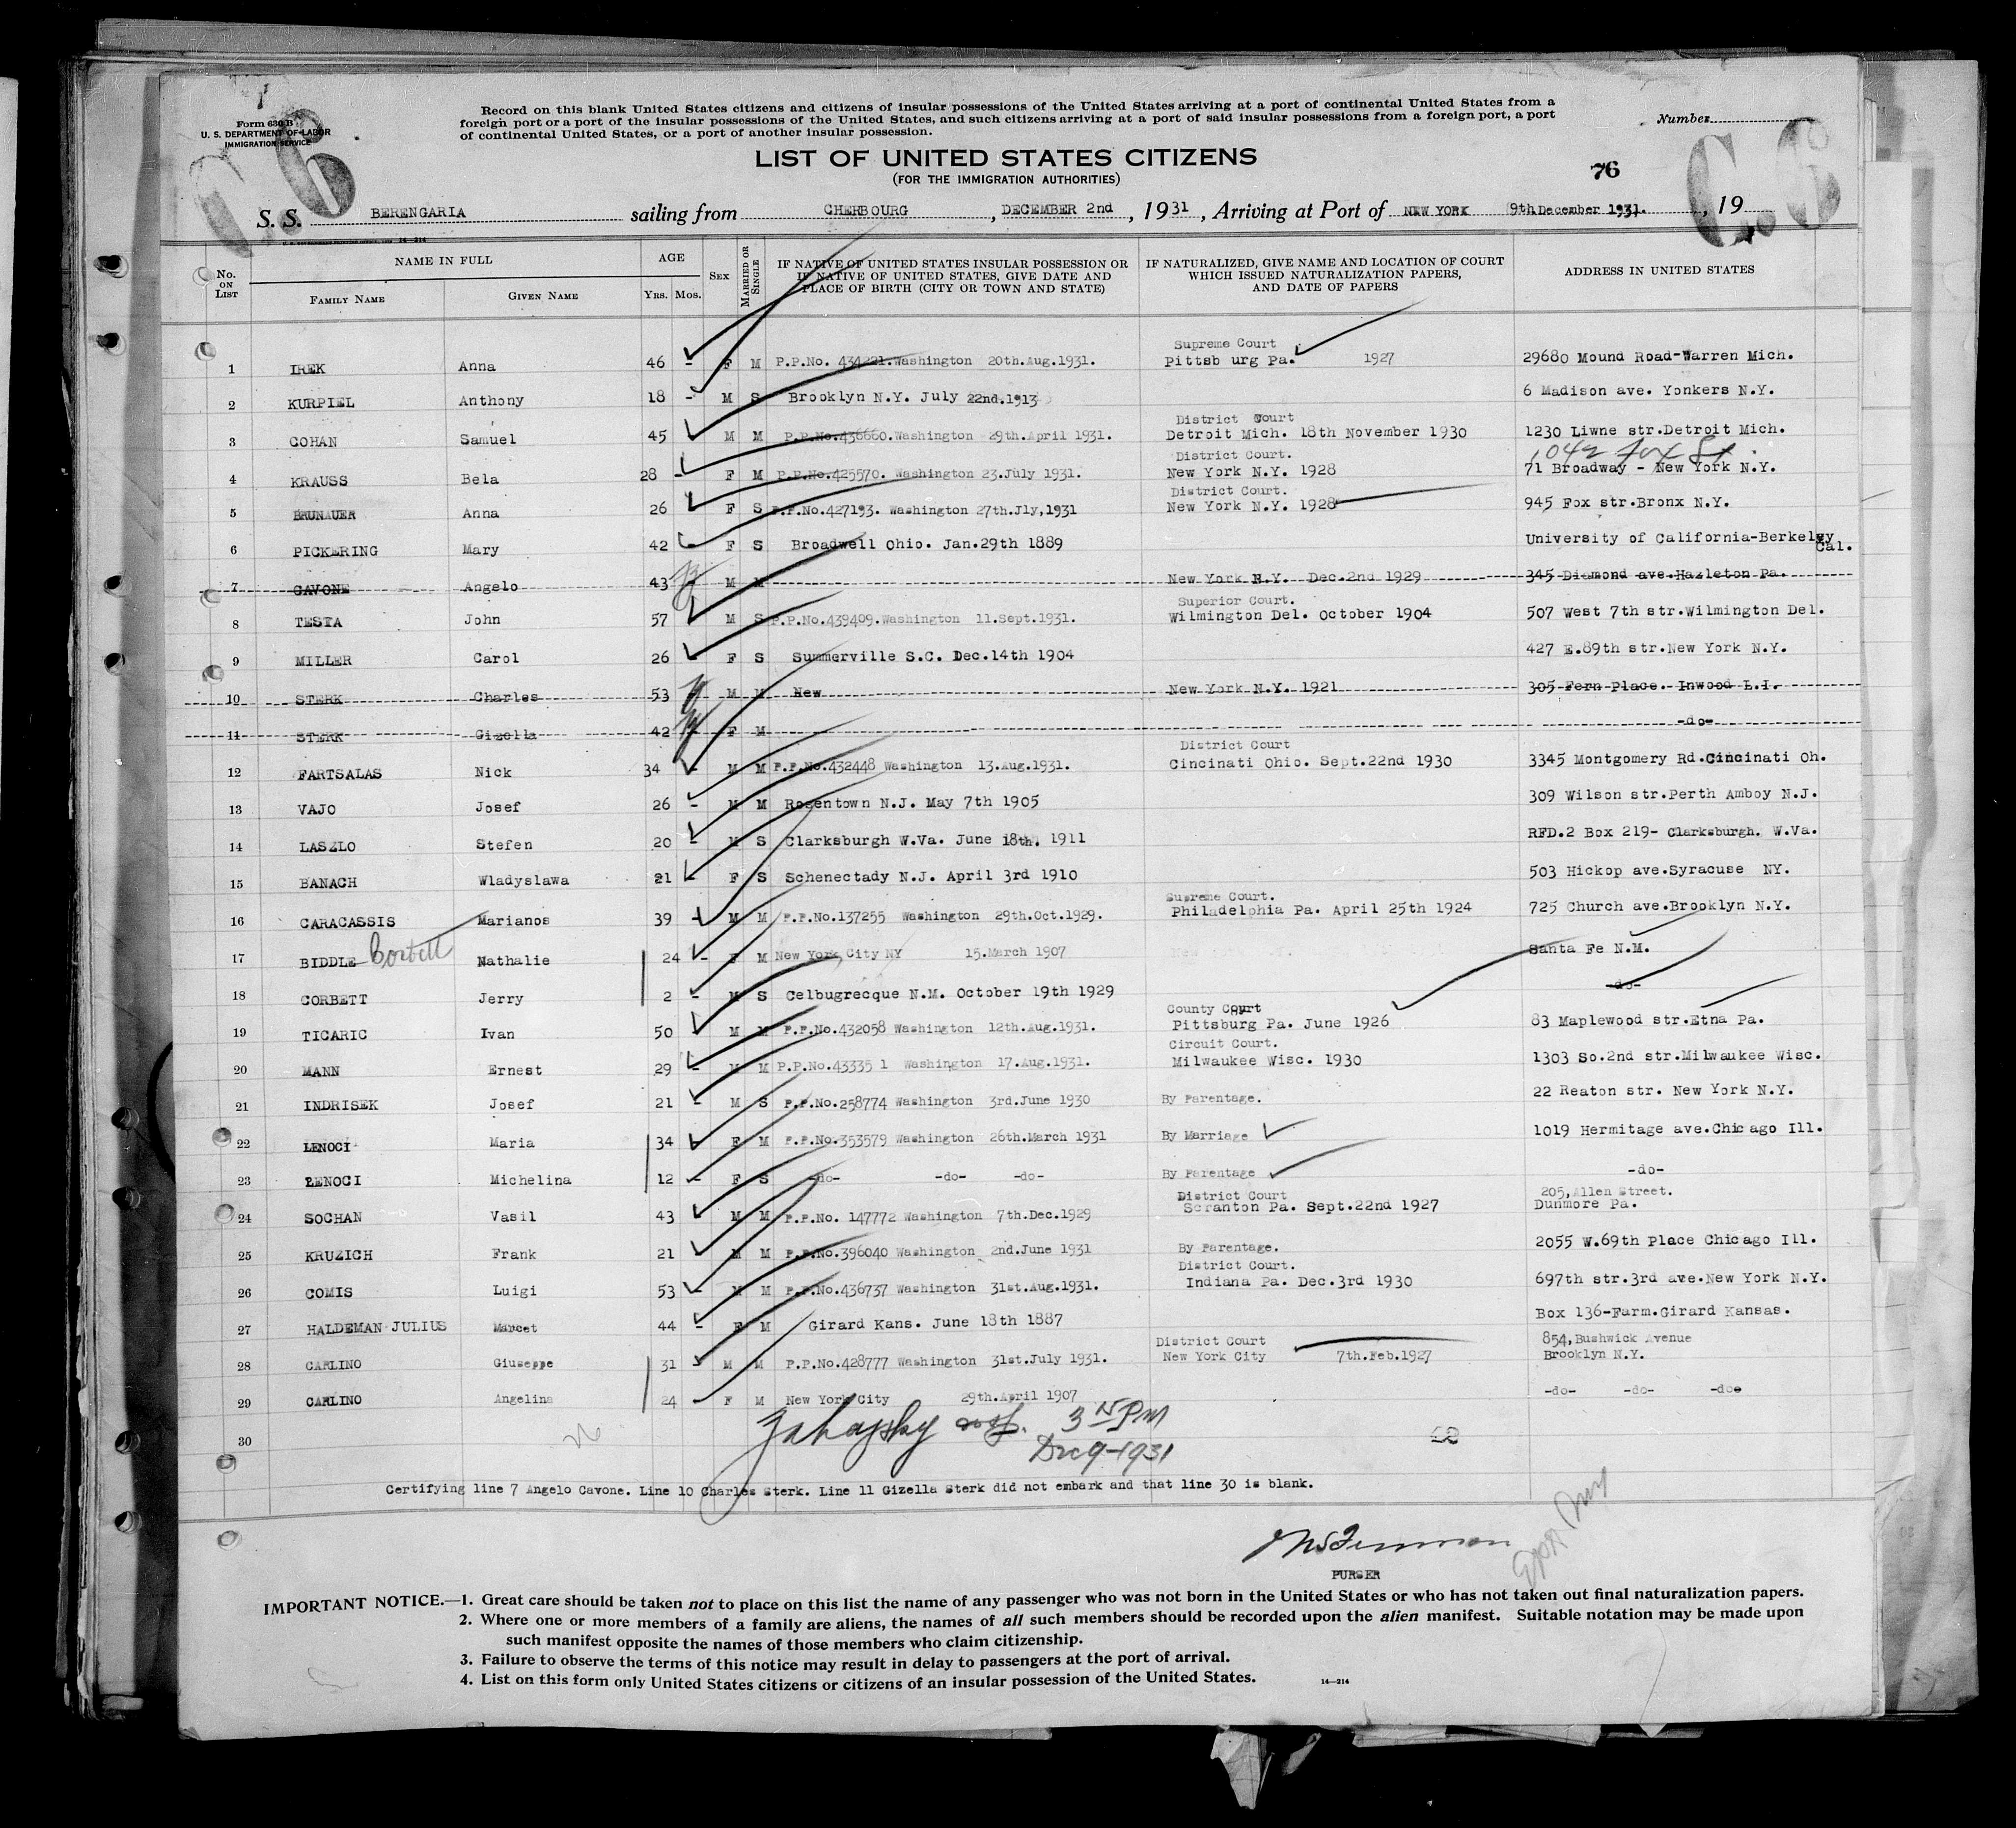 Form 630 B
U. S. DEPARTMENT OF LABOR
IMMIGRATION SERVICE
Record on this blank United States citizens and citizens of insular possessions of the United States arriving at a port of continental United States from a
foreign port or a port of the insular possessions of the United States, and such citizens arriving at a port of said insular possessions from a foreign port, a port
of continental United States, or a port of another insular possession.
Number
LIST OF UNITED STATES CITIZENS
(FOR THE IMMIGRATION AUTHORITIES)
76
S. S. BERENGARIA sailing from CHERBOURG, DECEMBER 2nd, 1931, Arriving at Port of NEW YORK 9th December 1931., 19
No. ON LIST NAME IN FULL AGE SEX MARRIED OR SINGLE IF NATIVE OF UNITED STATES INSULAR POSSESSION OR IF NATIVE OF UNITED STATES, GIVE DATE AND PLACE OF BIRTH (CITY OR TOWN AND STATE) IF NATURALIZED, GIVE NAME AND LOCATION OF COURT WHICH ISSUED NATURALIZATION PAPERS, AND DATE OF PAPERS ADDRESS IN UNITED STATES
FAMILY NAME GIVEN NAME YRS. MOS.
1 IREK Anna 46 - F M P.P.No. 434221.Washington 20th.Aug.1931. Supreme Court Pittsb urg Pa. 1927 29680 Mound Road-Warren Mich.
2 KURPIEL Anthony 18 - M S Brooklyn N.Y. July 22nd.1913 6 Madison ave. Yonkers N.Y.
3 COHAN Samuel 45 M M P.P.No.436660.Washington 29th.April 1931. District Court Detroit Mich. 18th November 1930 1230 Liwne str.Detroit Mich.
1042 Fox St.
4 KRAUSS Bela 28 - F M P.P.No.425570. Washington 23.July 1931. District Court. New York N.Y. 1928 71 Broadway - New York N.Y.
5 BRUNAUER Anna 26 F S P.P.No.427193. Washington 27th.Jly,1931 District Court. New York N.Y. 1928 945 Fox str.Bronx N.Y.
6 PICKERING Mary 42 - F S Broadwell Ohio. Jan.29th 1889 University of California-Berkeley Cal.
7 CAVONE Angelo 43 M M New York N.Y. Dec.2nd 1929 345 Diamond ave.Hazleton Pa.
8 TESTA John 57 M S P.P.No.439409.Washington 11.Sept.1931. Superior Court. Wilmington Del. October 1904 507 West 7th str.Wilmington Del.
9 MILLER Carol 26 - F S Summerville S.C. Dec.14th 1904 427 E.89th str.New York N.Y.
10 STERK Charles 53 M M New New York N.Y. 1921 305 Fern Place. Inwood L.I.
11 STERK Gizella 42 F M -do-
12 FARTSALAS Nick 34 - M M P.P.No.432448 Washington 13.Aug.1931. District Court Cincinati Ohio. Sept.22nd 1930 3345 Montgomery Rd.Cincinati Oh.
13 VAJO Josef 26 - M M Rosentown N.J. May 7th 1905 309 Wilson str.Perth Amboy N.J.
14 LASZLO Stefen 20 - M S Clarksburgh W.Va. June 18th. 1911 RFD.2 Box 219- Clarksburgh. W.Va.
15 BANACH Wladyslawa 21 - F S Schenectady N.J. April 3rd 1910 503 Hickop ave.Syracuse NY.
16 CARACASSIS Marianos 39 - M M P.P.No.137255 Washington 29th.Oct.1929. Supreme Court. Philadelphia Pa. April 25th 1924 725 Church ave.Brooklyn N.Y.
17 BIDDLE Corbett Nathalie 24 - F M New York City NY 15.March 1907 Santa Fe N.M.
18 CORBETT Jerry 2 - M S Celbugrecque N.M. October 19th 1929 -do-
19 TICARIC Ivan 50 M M P.P.No.432058 Washington 12th.Aug.1931. County Court Pittsburg Pa. June 1926 83 Maplewood str.Etna Pa.
20 MANN Ernest 29 - M M P.P.No.43335 1 Washington 17.Aug.1931. Circuit Court. Milwaukee Wisc. 1930 1303 So.2nd str.Milwaukee Wisc.
21 INDRISEK Josef 21 - M S P.P.No.258774 Washington 3rd.June 1930 By Parentage. 22 Reaton str. New York N.Y.
22 LENOCI Maria 34 - F M P.P.No.353579 Washington 26th.March 1931 By Marriage 1019 Hermitage ave.Chicago Ill.
23 LENOCI Michelina 12 - F S -do- -do- -do- By Parentage -do-
24 SOCHAN Vasil 43 M M P.P.No. 147772 Washington 7th.Dec.1929 District Court Scranton Pa. Sept.22nd 1927 205,Allen Street. Dunmore Pa.
25 KRUZICH Frank 21 M M P.P.No.396040 Washington 2nd.June 1931 By Parentage. 2055 W.69th Place Chicago Ill.
26 COMIS Luigi 53 - M M P.P.No.436737 Washington 31st.Aug.1931. District Court. Indiana Pa. Dec.3rd 1930 697th str.3rd ave.New York N.Y.
27 HALDEMAN JULIUS Marcet 44 - F M Girard Kans. June 18th 1887 Box 136-Farm.Girard Kansas.
28 CARLINO Giuseppe 31 - M M P.P.No.428777 Washington 31st.July 1931. District Court New York City 7th.Feb.1927 854,Bushwick Avenue Brooklyn N.Y.
29 CARLINO Angelina 24 - F M New York City 29th.April 1907 -do- -do- -do-
30
3 PM
Dec 9-1931
Certifying line 7 Angelo Cavone. Line 10 Charles Sterk. Line 11 Gizella Sterk did not embark and that line 30 is blank.
PURSER
IMPORTANT NOTICE.—1. Great care should be taken not to place on this list the name of any passenger who was not born in the United States or who has not taken out final naturalization papers.
2. Where one or more members of a family are aliens, the names of all such members should be recorded upon the alien manifest. Suitable notation may be made upon
such manifest opposite the names of those members who claim citizenship.
3. Failure to observe the terms of this notice may result in delay to passengers at the port of arrival.
4. List on this form only United States citizens or citizens of an insular possession of the United States.
14—214